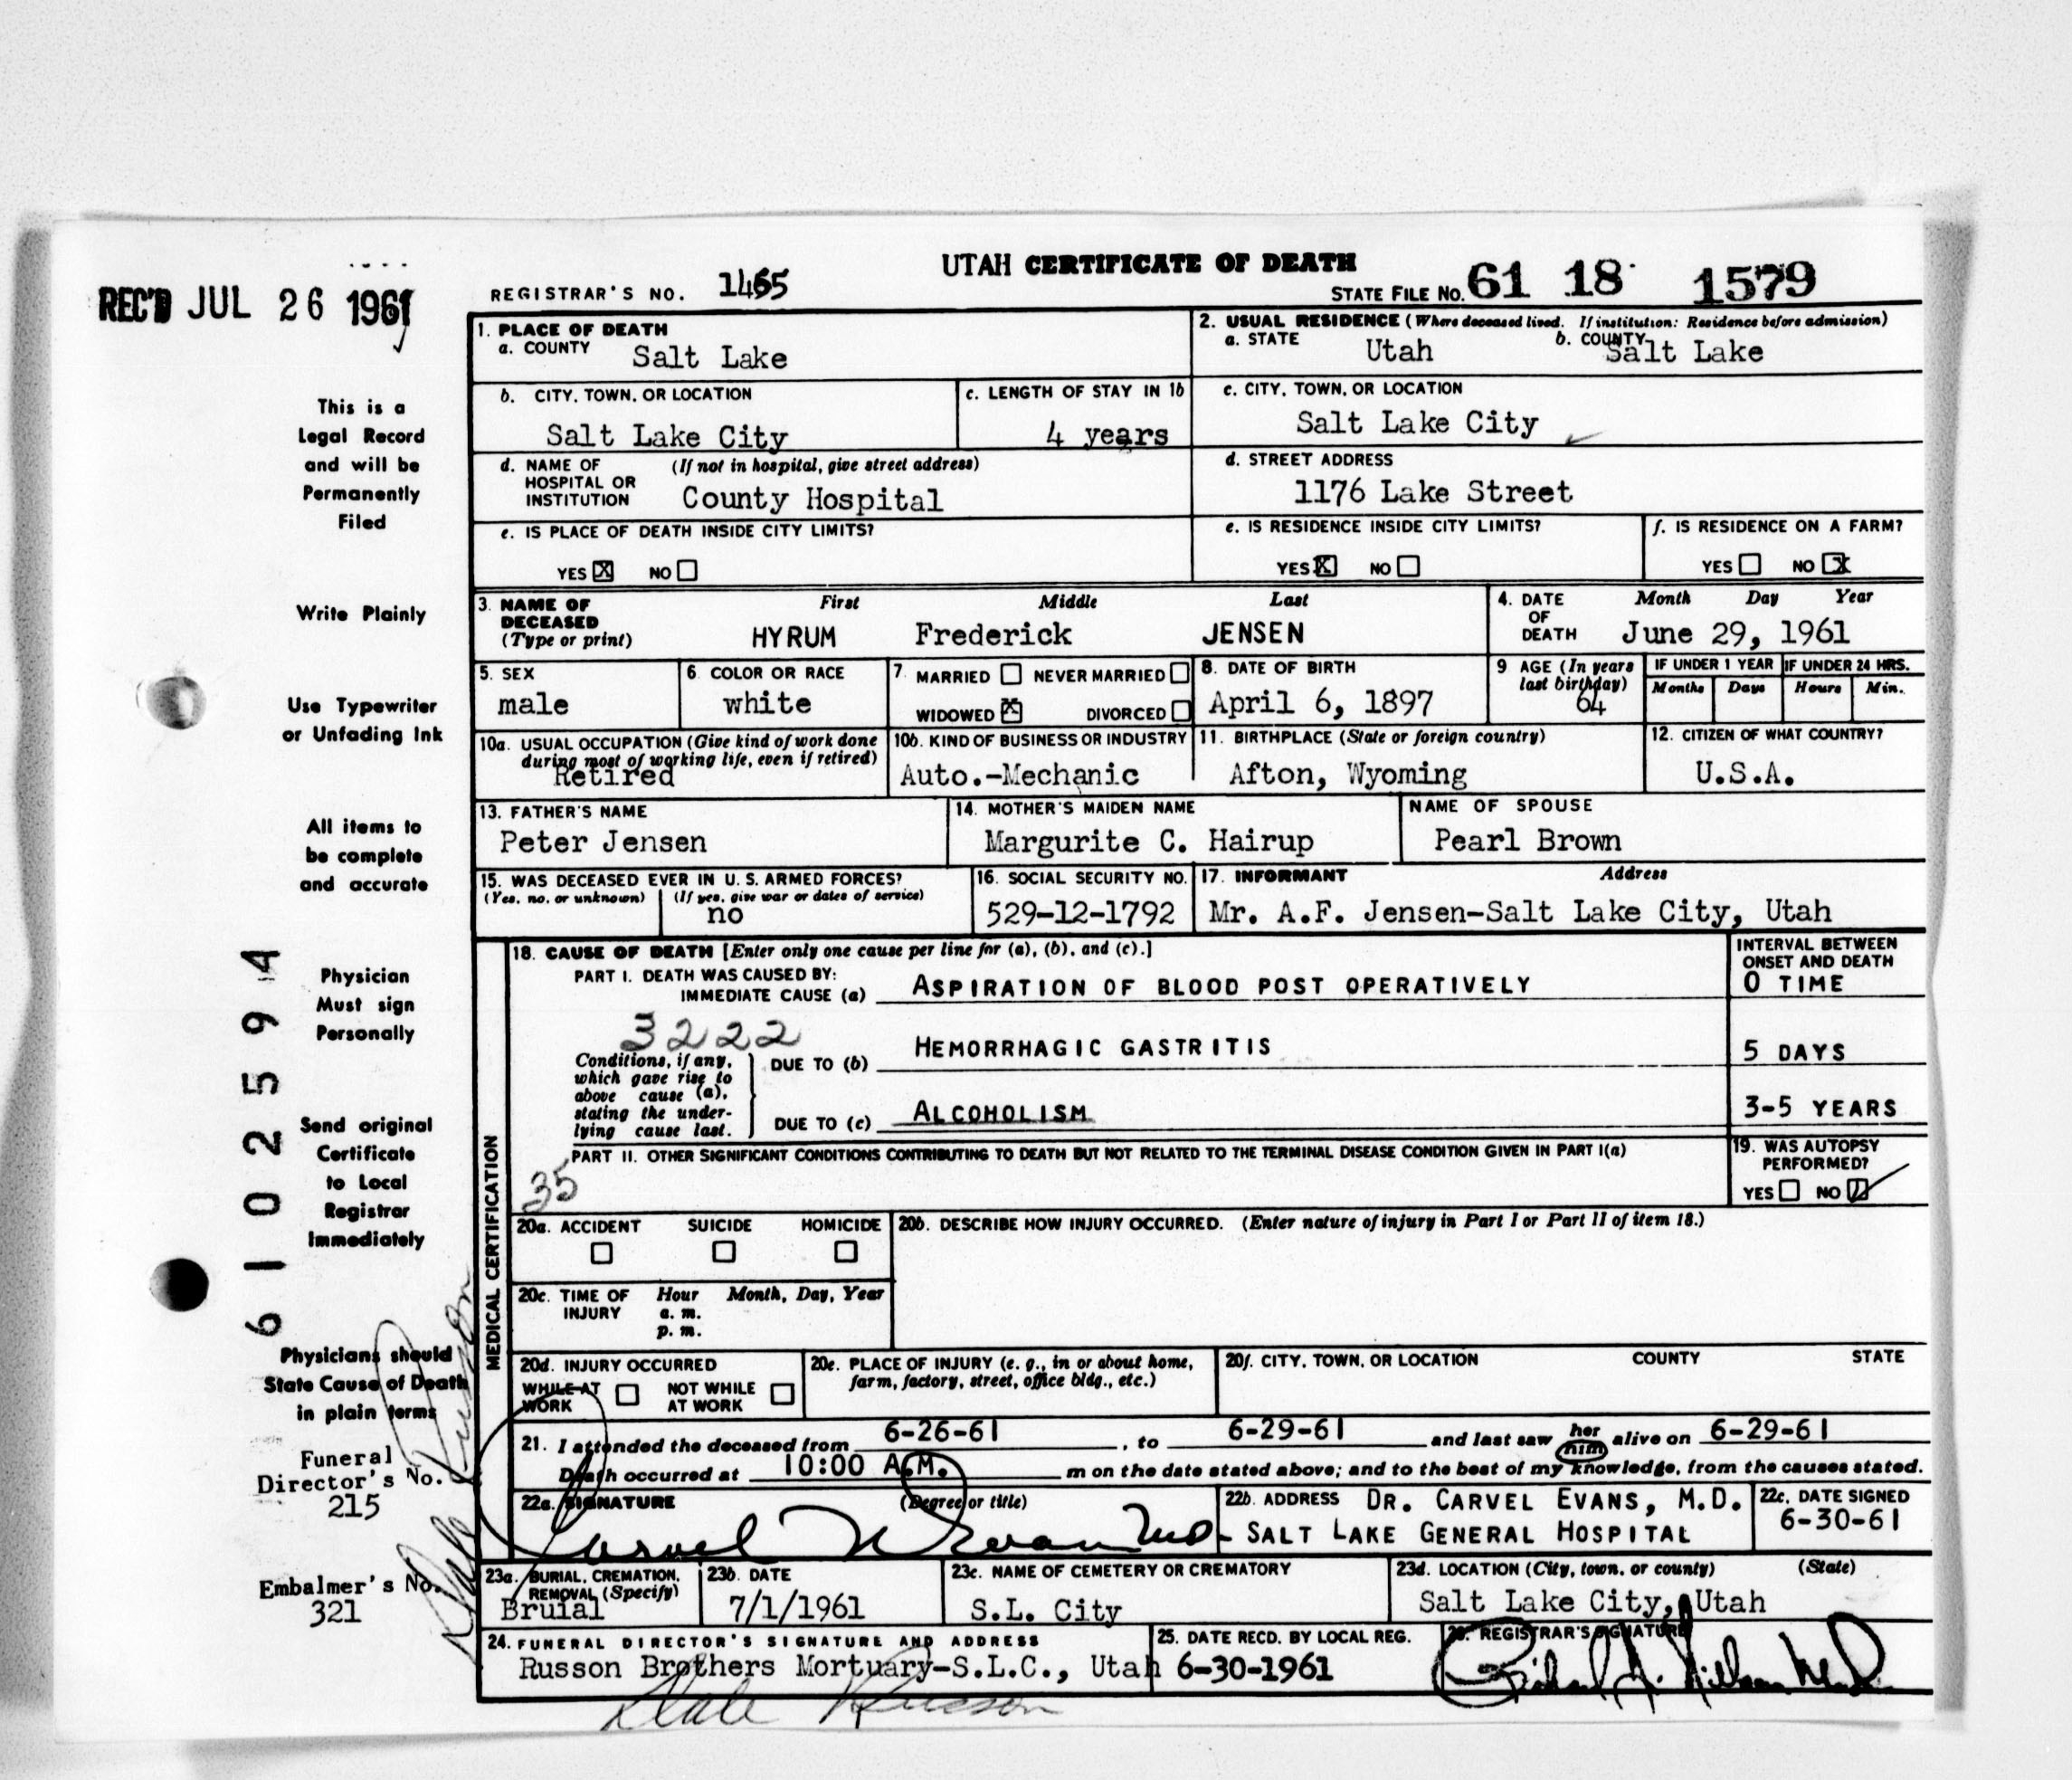 UTAH CERTIFICATE OF DEATH
REC'D JUL 26 1961
REGISTRAR'S NO. 1465
STATE FILE NO. 61 18 1579
This is a
Legal Record
and will be
Permanently
Filed
Write Plainly
Use Typewriter
or Unfading Ink
All items to
be complete
and accurate
Physician
Must sign
Personally
Send original
Certificate
to Local
Registrar
Immediately
Physicians should
State Cause of Death
in plain terms
Funeral
Director's No.
215
Embalmer's No.
321
Dale Russon
6102594
1. PLACE OF DEATH
a. COUNTY Salt Lake
2. USUAL RESIDENCE (Where deceased lived. If institution: Residence before admission)
a. STATE Utah b. COUNTY Salt Lake
b. CITY, TOWN, OR LOCATION
Salt Lake City
c. LENGTH OF STAY IN 1b
4 years
c. CITY, TOWN, OR LOCATION
Salt Lake City
d. NAME OF (If not in hospital, give street address)
HOSPITAL OR
INSTITUTION County Hospital
d. STREET ADDRESS
1176 Lake Street
e. IS PLACE OF DEATH INSIDE CITY LIMITS?
YES X NO
e. IS RESIDENCE INSIDE CITY LIMITS?
YES X NO
f. IS RESIDENCE ON A FARM?
YES NO X
3. NAME OF DECEASED (Type or print)
First Middle Last
HYRUM Frederick JENSEN
4. DATE OF DEATH
Month Day Year
June 29, 1961
5. SEX
male
6. COLOR OR RACE
white
7. MARRIED NEVER MARRIED
WIDOWED X DIVORCED
8. DATE OF BIRTH
April 6, 1897
9 AGE (In years
last birthday)
64
IF UNDER 1 YEAR
Months Days
IF UNDER 24 HRS.
Hours Min.
10a. USUAL OCCUPATION (Give kind of work done
during most of working life, even if retired)
Retired
10b. KIND OF BUSINESS OR INDUSTRY
Auto.-Mechanic
11. BIRTHPLACE (State or foreign country)
Afton, Wyoming
12. CITIZEN OF WHAT COUNTRY?
U.S.A.
13. FATHER'S NAME
Peter Jensen
14. MOTHER'S MAIDEN NAME
Margurite C. Hairup
NAME OF SPOUSE
Pearl Brown
15. WAS DECEASED EVER IN U. S. ARMED FORCES?
(Yes, no, or unknown) (If yes, give war or dates of service)
no
16. SOCIAL SECURITY NO.
529-12-1792
17. INFORMANT Address
Mr. A.F. Jensen-Salt Lake City, Utah
MEDICAL CERTIFICATION
18. CAUSE OF DEATH [Enter only one cause per line for (a), (b), and (c).]
PART I. DEATH WAS CAUSED BY:
IMMEDIATE CAUSE (a) ASPIRATION OF BLOOD POST OPERATIVELY
INTERVAL BETWEEN
ONSET AND DEATH
0 TIME
3222
Conditions, if any,
which gave rise to
above cause (a),
stating the under-
lying cause last.
DUE TO (b) HEMORRHAGIC GASTRITIS
5 DAYS
DUE TO (c) ALCOHOLISM
3-5 YEARS
PART II. OTHER SIGNIFICANT CONDITIONS CONTRIBUTING TO DEATH BUT NOT RELATED TO THE TERMINAL DISEASE CONDITION GIVEN IN PART I(a)
35
19. WAS AUTOPSY
PERFORMED?
YES NO
20a. ACCIDENT SUICIDE HOMICIDE
20b. DESCRIBE HOW INJURY OCCURRED. (Enter nature of injury in Part I or Part II of item 18.)
20c. TIME OF INJURY
Hour Month, Day, Year
a. m.
p. m.
20d. INJURY OCCURRED
WHILE AT WORK NOT WHILE AT WORK
20e. PLACE OF INJURY (e. g., in or about home,
farm, factory, street, office bldg., etc.)
20f. CITY, TOWN, OR LOCATION COUNTY STATE
21. I attended the deceased from 6-26-61, to 6-29-61 and last saw her him alive on 6-29-61
Death occurred at 10:00 A.M. m on the date stated above; and to the best of my knowledge, from the causes stated.
22a. SIGNATURE (Degree or title)
Carvel W Evans MD
22b. ADDRESS DR. CARVEL EVANS, M.D.
SALT LAKE GENERAL HOSPITAL
22c. DATE SIGNED
6-30-61
23a. BURIAL, CREMATION,
REMOVAL (Specify)
Bruial
23b. DATE
7/1/1961
23c. NAME OF CEMETERY OR CREMATORY
S.L. City
23d. LOCATION (City, town, or county) (State)
Salt Lake City, Utah
24. FUNERAL DIRECTOR'S SIGNATURE AND ADDRESS
Russon Brothers Mortuary-S.L.C., Utah
Dale Russon
25. DATE RECD. BY LOCAL REG.
6-30-1961
26. REGISTRAR'S SIGNATURE